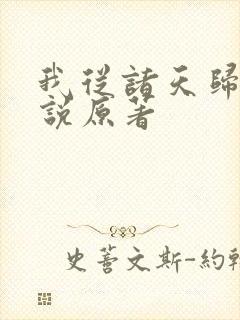 我從諸天歸
說原著
史蒼文斯-約翰